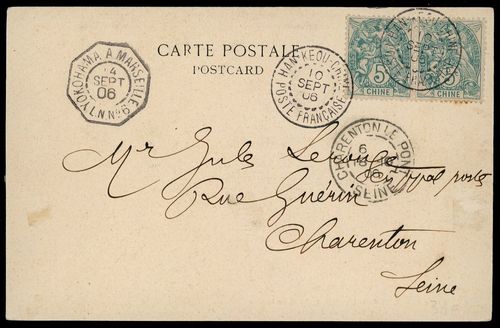 CARTE POSTALE
POSTCARD
YOKOHAMA A MARSEILLE
14
SEPT
06
LN No
HAN-KEOU-CHINE
10
SEPT
06
POSTE FRANÇAISE
10
SEPT
06
5 5
CHINE CHINE
CHARENTON LE PONT
6
SEINE
Mr Jules
Rue Guérin
Charenton
Seine